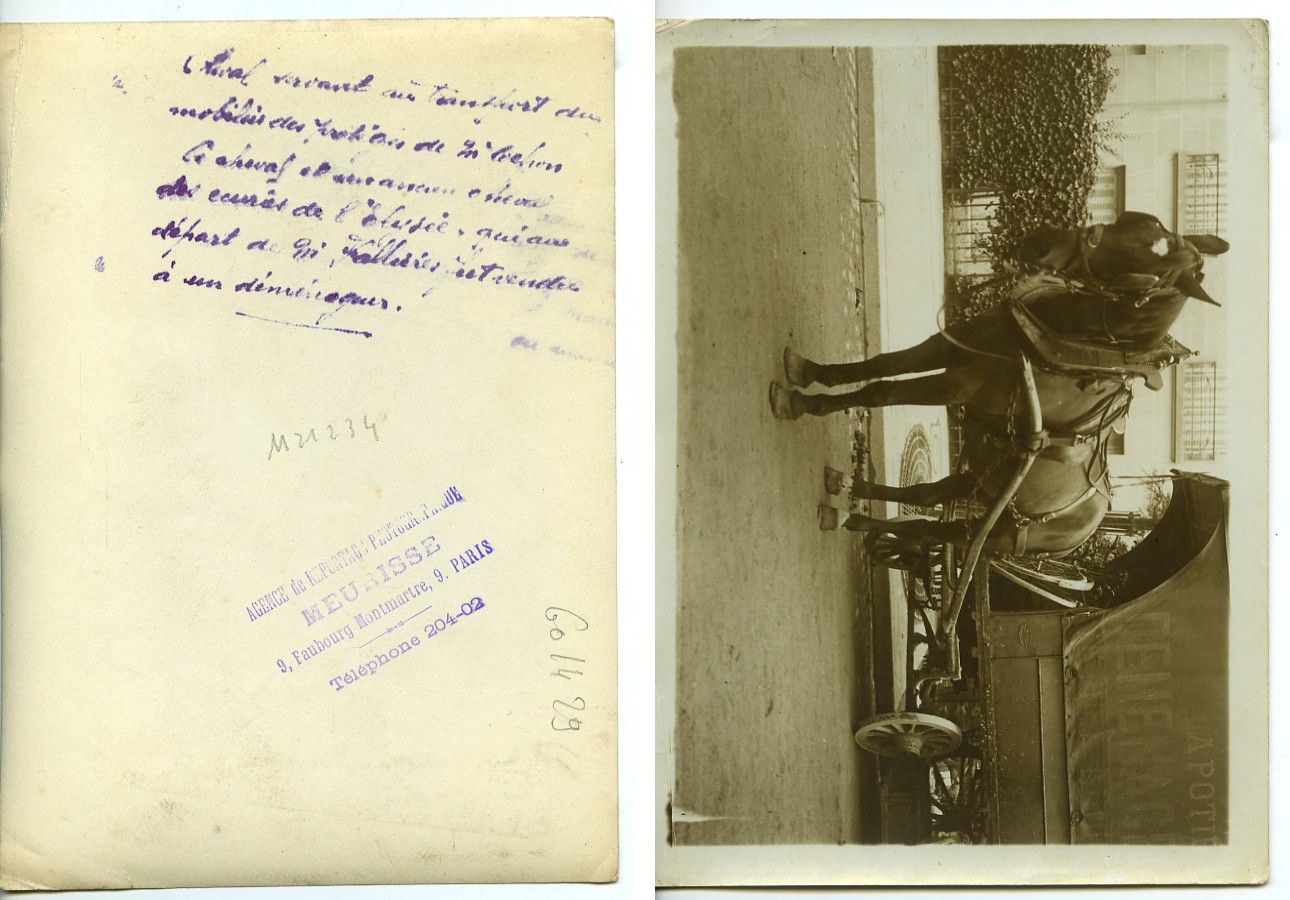 Cheval servant au transport du
mobilier des protégés de Mr Cochon
Ce cheval est un ancien cheval
des ecuries de l'Elysée, qui au
départ de Mr Fallières fut vendu
à un déménageur.
M21234
AGENCE de REPORTAGE PHOTOGRAPHIQUE
MEURISSE
9, Faubourg Montmartre, 9. PARIS
Téléphone 204-02